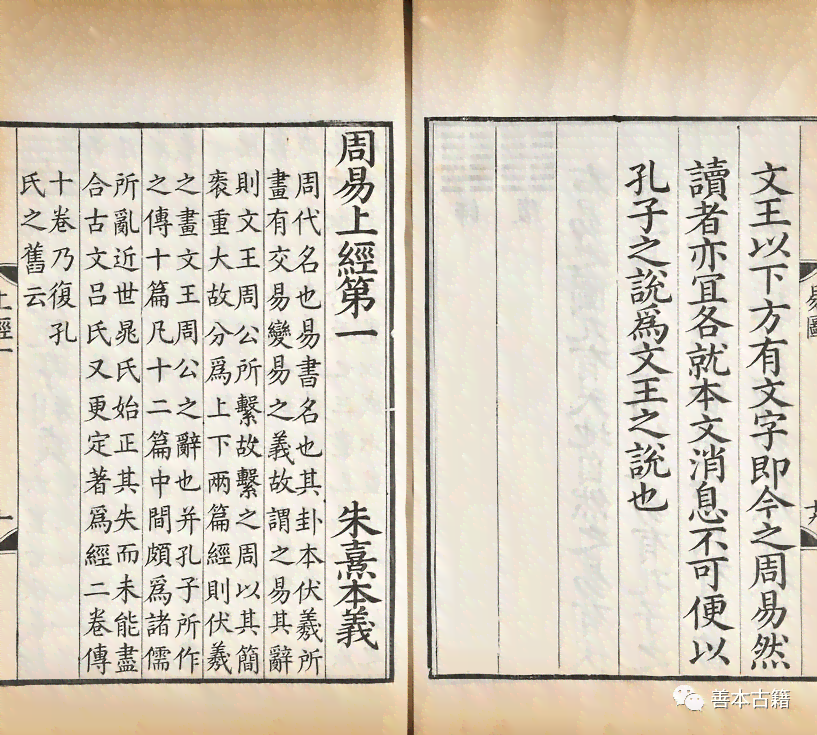 文王以下方有文字即今之周易然
讀者亦宜各就本文消息不可便以
孔子之說爲文王之說也
易圖
周易上經第一
朱熹本義
周代名也易書名也其卦本伏羲所
畫有交易變易之義故謂之易其辭
則文王周公所繫故繫之周以其簡
袠重大故分爲上下兩篇經則伏羲
之畫文王周公之辭也并孔子所作
之傳十篇凡十二篇中間頗爲諸儒
所亂近世晁氏始正其失而未能盡
合古文呂氏又更定著爲經二卷傳
十卷乃復孔
氏之舊云
上經一
善本古籍